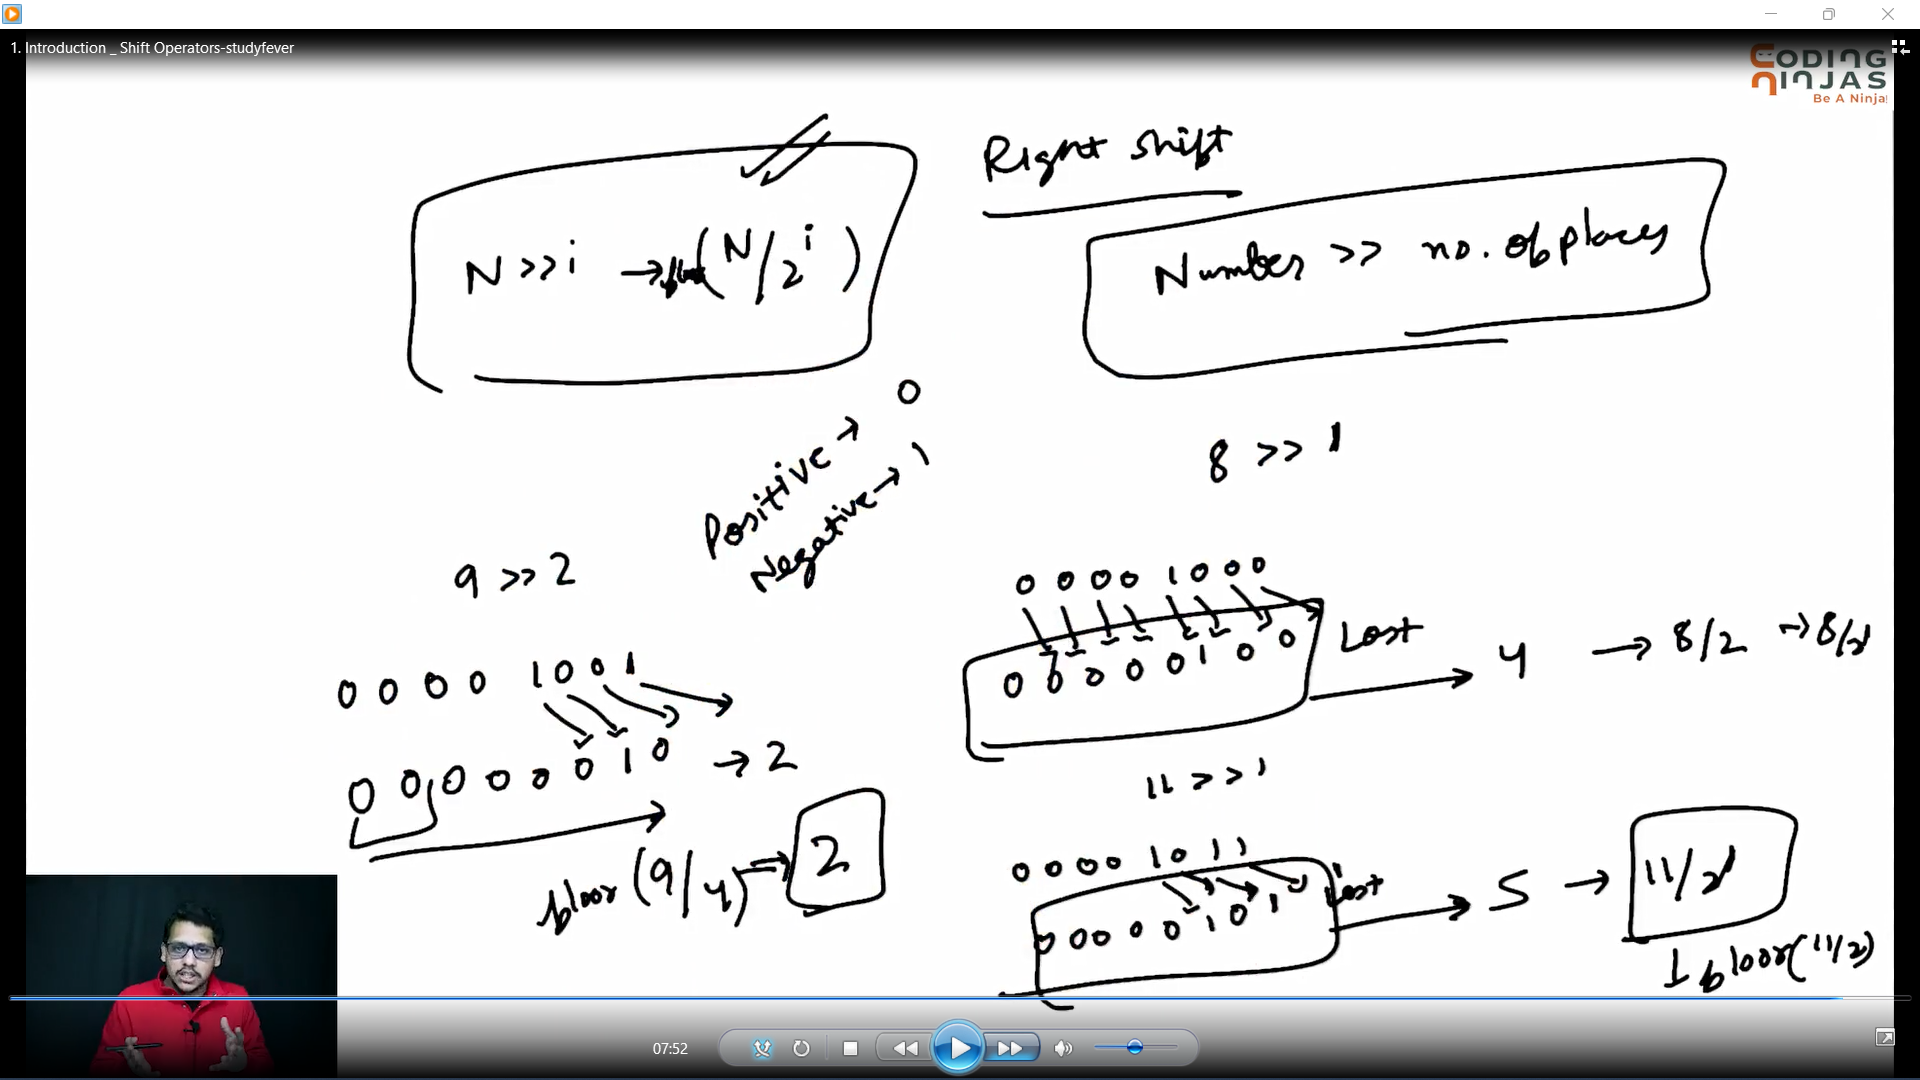 1. Introduction _ Shift Operators-studyfever
CODING
NINJAS
Be A Ninja
Right shift
N >> i → floor (N/2^i)
Number >> no. of places
Positive → 0
Negative → 1
8 >> 1
9 >> 2
0 0 0 0 1 0 0 0
Lost
0 0 0 0 0 1 0 0 → 4 → 8/2 → 8/2¹
0 0 0 0 1 0 0 1
0 0 0 0 0 0 1 0 → 2
11 >> 1
floor (9/4) → 2
0 0 0 0 1 0 1 1
Lost
0 0 0 0 0 1 0 1 → 5 → 11/2¹
↓ floor(11/2)
07:52